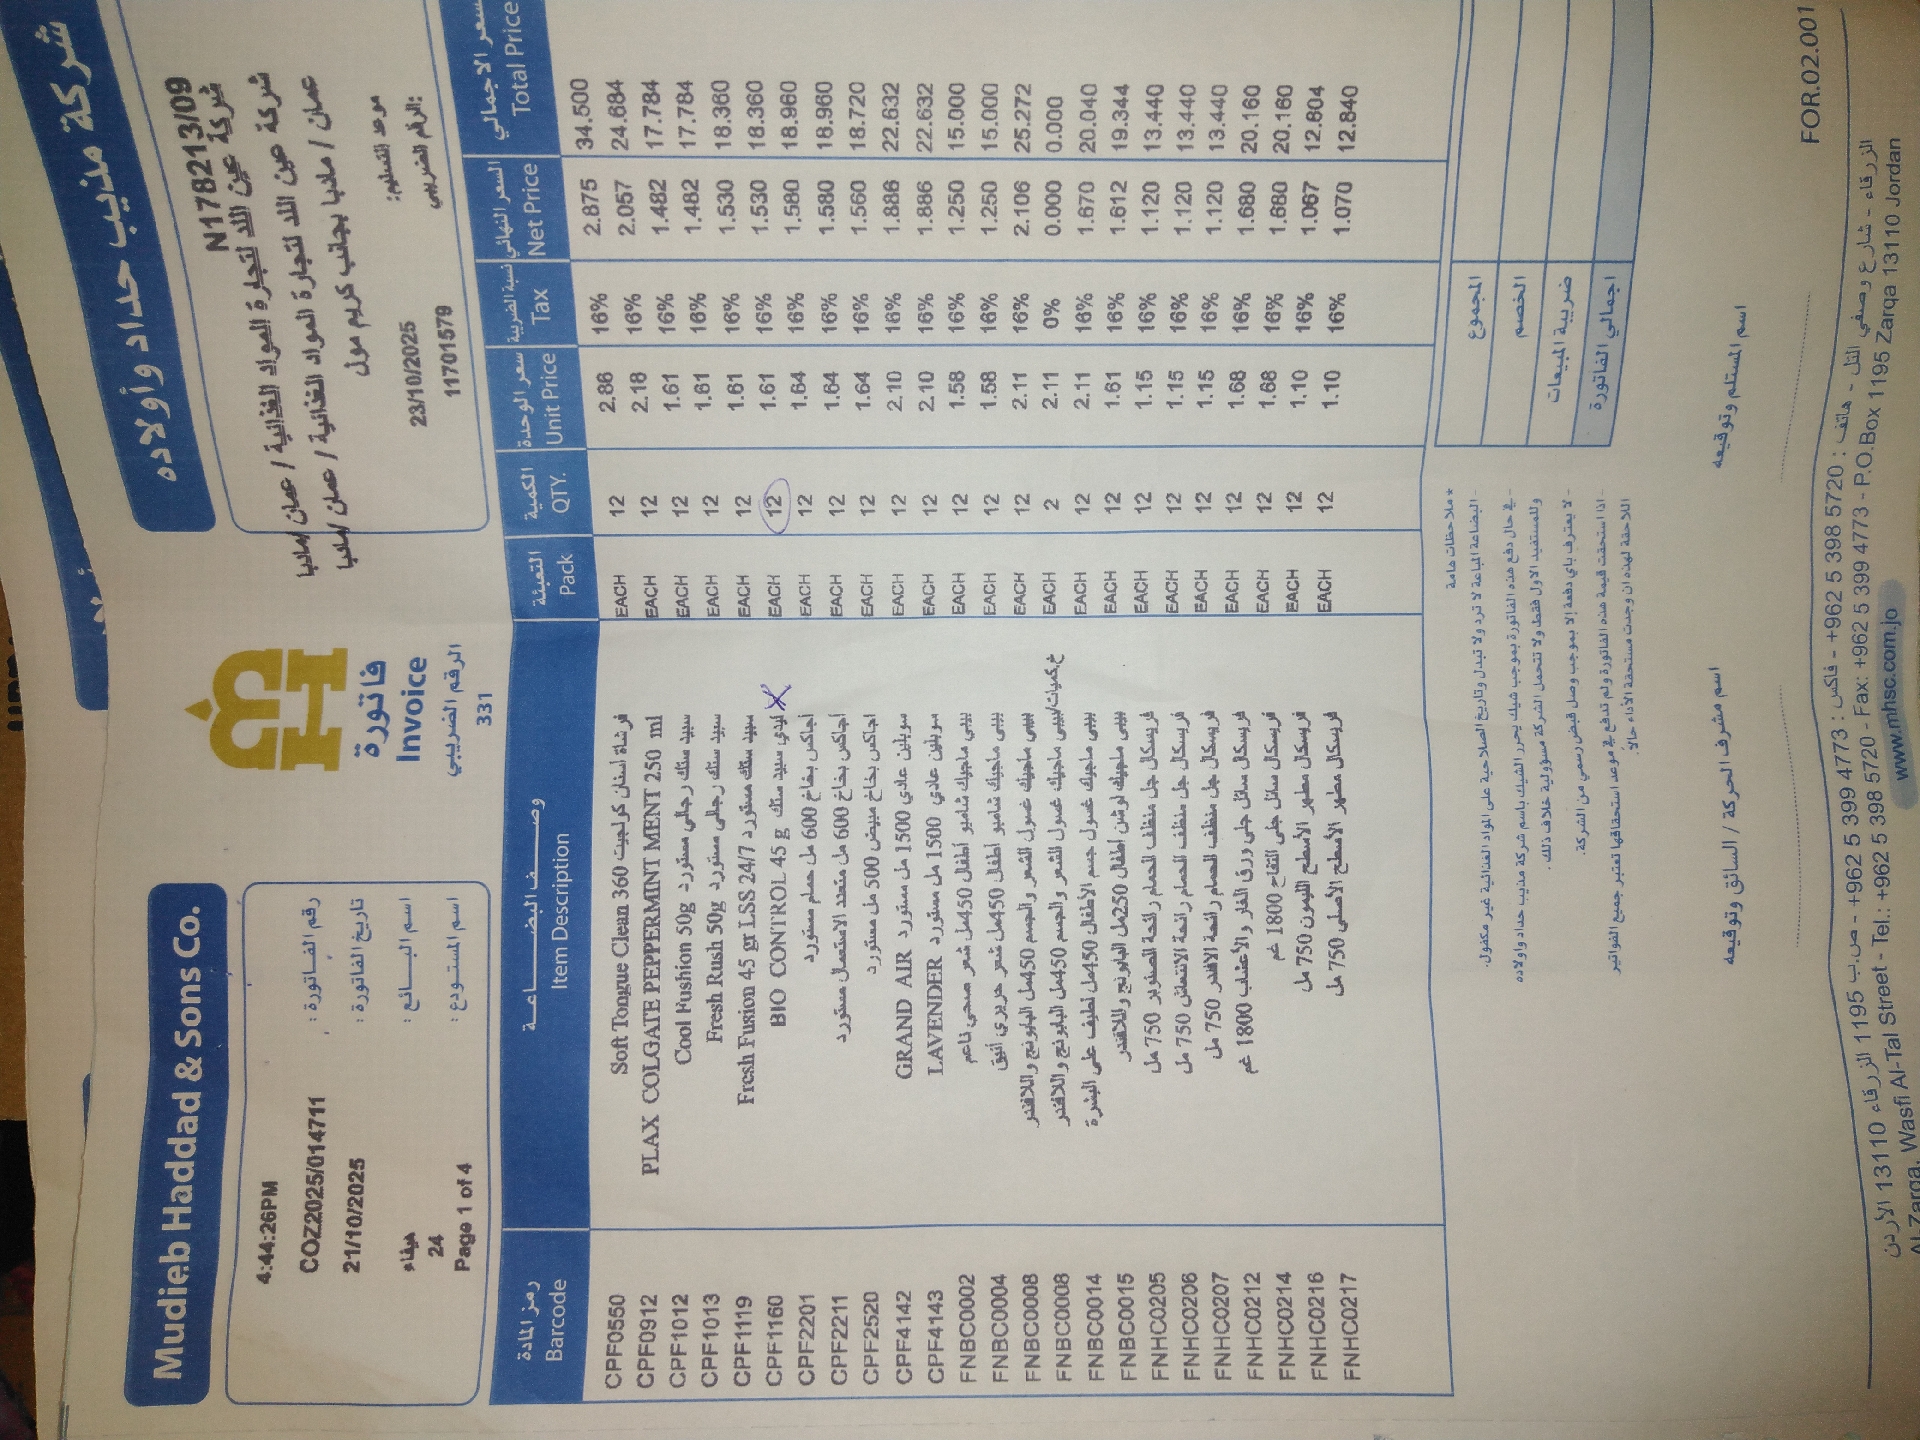 Mudieb Haddad & Sons Co.
شركة مذيب حداد وأولاده
فاتورة
Invoice
الرقم الضريبي
331
4:44:26PM
رقم الفاتورة : COZ2025/014711
تاريخ الفاتورة : 21/10/2025
اسم البائع : هيفاء
اسم المستودع : 24
Page 1 of 4
N178213/09
شركة عين اللد لتجارة المواد الغذائية / عمان /مادبا
شركة عين اللد لتجارة المواد الغذائية / عمان /مادبا
عمان / مادبا بجانب كريم مول
موعد التسليم: 23/10/2025
الرقم الضريبي: 11701579
رمز المادة وصف البضاعة التعبئة الكمية سعر الوحدة نسبة الضريبة السعر النهائي السعر الاجمالي
Barcode Item Description Pack QTY. Unit Price Tax Net Price Total Price
CPF0550 فرشاة اسنان كولجيت 360 Soft Tongue Clean EACH 12 2.86 16% 2.875 34.500
CPF0912 PLAX COLGATE PEPPERMINT MENT 250 ml EACH 12 2.18 16% 2.057 24.684
CPF1012 سبيد ستك رجالي مستورد Cool Fushion 50g EACH 12 1.61 16% 1.482 17.784
CPF1013 سبيد ستك رجالي مستورد Fresh Rush 50g EACH 12 1.61 16% 1.482 17.784
CPF1119 سبيد ستك مستورد Fresh Fusion 45 gr LSS 24/7 EACH 12 1.61 16% 1.530 18.360
CPF1160 ليدي سبيد ستك BIO CONTROL 45 g EACH 12 1.61 16% 1.530 18.360
CPF2201 اجاكس بخاخ 600 مل حمام مستورد EACH 12 1.64 16% 1.580 18.960
CPF2211 اجاكس بخاخ 600 مل متعدد الاستعمال مستورد EACH 12 1.64 16% 1.580 18.960
CPF2520 اجاكس بخاخ مبيض 500 مل مستورد EACH 12 1.64 16% 1.560 18.720
CPF4142 سوبلين عادي 1500 مل مستورد GRAND AIR EACH 12 2.10 16% 1.886 22.632
CPF4143 سوبلين عادي 1500 مل مستورد LAVENDER EACH 12 2.10 16% 1.886 22.632
FNBC0002 بيبي ماجيك شامبو اطفال 450مل شعر صحي ناعم EACH 12 1.58 16% 1.250 15.000
FNBC0004 بيبي ماجيك شامبو اطفال 450مل شعر حريري أنيق EACH 12 1.58 16% 1.250 15.000
FNBC0008 بيبي ماجيك غسول الشعر والجسم 450مل البابونج واللافندر EACH 12 2.11 16% 2.106 25.272
FNBC0008 خ.كميات/بيبي ماجيك غسول الشعر والجسم 450مل البابونج واللافندر EACH 2 2.11 0% 0.000 0.000
FNBC0014 بيبي ماجيك غسول جسم الأطفال 450مل لطيف على البشرة EACH 12 2.11 16% 1.670 20.040
FNBC0015 بيبي ماجيك لوشن اطفال 250مل البابونج واللافندر EACH 12 1.61 16% 1.612 19.344
FNHC0205 فريسكال جل منظف الحمام رائحة الصنوبر 750 مل EACH 12 1.15 16% 1.120 13.440
FNHC0206 فريسكال جل منظف الحمام رائحة الانتعاش 750 مل EACH 12 1.15 16% 1.120 13.440
FNHC0207 فريسكال جل منظف الحمام رائحة الافندر 750 مل EACH 12 1.15 16% 1.120 13.440
FNHC0212 فريسكال سائل جلي ورق الغار والأعشاب 1800 غم EACH 12 1.68 16% 1.680 20.160
FNHC0214 فريسكال سائل جلي التفاح 1800 غم EACH 12 1.68 16% 1.680 20.160
FNHC0216 فريسكال مطهر الأسطح الليمون 750 مل EACH 12 1.10 16% 1.067 12.804
FNHC0217 فريسكال مطهر الأسطح الأصلي 750 مل EACH 12 1.10 16% 1.070 12.840
المجموع
الخصم
ضريبة المبيعات
اجمالي الفاتورة
*ملاحظات هامة
- البضاعة المباعة لا ترد ولا تبدل وتاريخ الصلاحية على المواد الغذائية غير مكفول.
- في حال دفع هذه الفاتورة بموجب شيك يحرر الشيك باسم شركة مذيب حداد واولاده
وللمستفيد الاول فقط ولا تتحمل الشركة مسؤولية خلاف ذلك.
- لا يعترف باي دفعة إلا بموجب وصل قبض رسمي من الشركة.
- اذا استحقت قيمة هذه الفاتورة ولم تدفع في موعد استحقاقها تعتبر جميع الفواتير
اللاحقة لهذه ان وجدت مستحقة الأداء حالاً.
اسم مشرف الحركة / السائق وتوقيعه
اسم المستلم وتوقيعه
FOR.02.001
الزرقاء - شارع وصفي التل - هاتف : 5720 398 5 962+ - فاكس : 4773 399 5 962+ - ص.ب 1195 الزرقاء 13110 الأردن
Al-Zarqa, Wasfi Al-Tal Street - Tel.: +962 5 398 5720 - Fax: +962 5 399 4773 - P.O.Box 1195 Zarqa 13110 Jordan
www.mhsc.com.jo